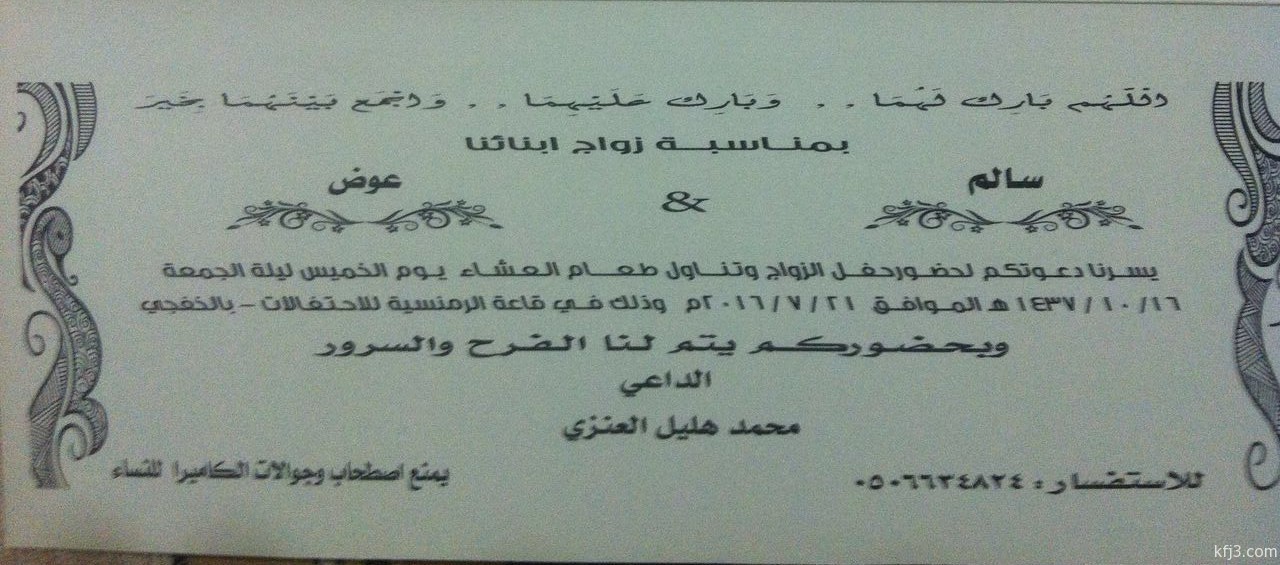 اللَّهُم بَارِك لَهُمَا . . وَبَارِك عَلَيْهِمَا . . وَاجْمَع بَيْنَهُمَا بِخَيرَ
بمناسبة زواج ابنائنا
سالم & عوض
يسرنا دعوتكم لحضورحفل الزواج وتناول طعام العشاء يوم الخميس ليلة الجمعة
١٤٣٧/١٠/١٦ هـ الموافق ٢٠١٦/٧/٢١م وذلك في قاعة الرمنسية للاحتفالات - بالخفجي
وبحضوركم يتم لنا الفرح والسرور
الداعي
محمد هليل العنزي
للاستفسار: ٠٥٠٦٦٣٤٨٢٤ يمنع اصطحاب وجوالات الكاميرا للنساء
kfj3.com